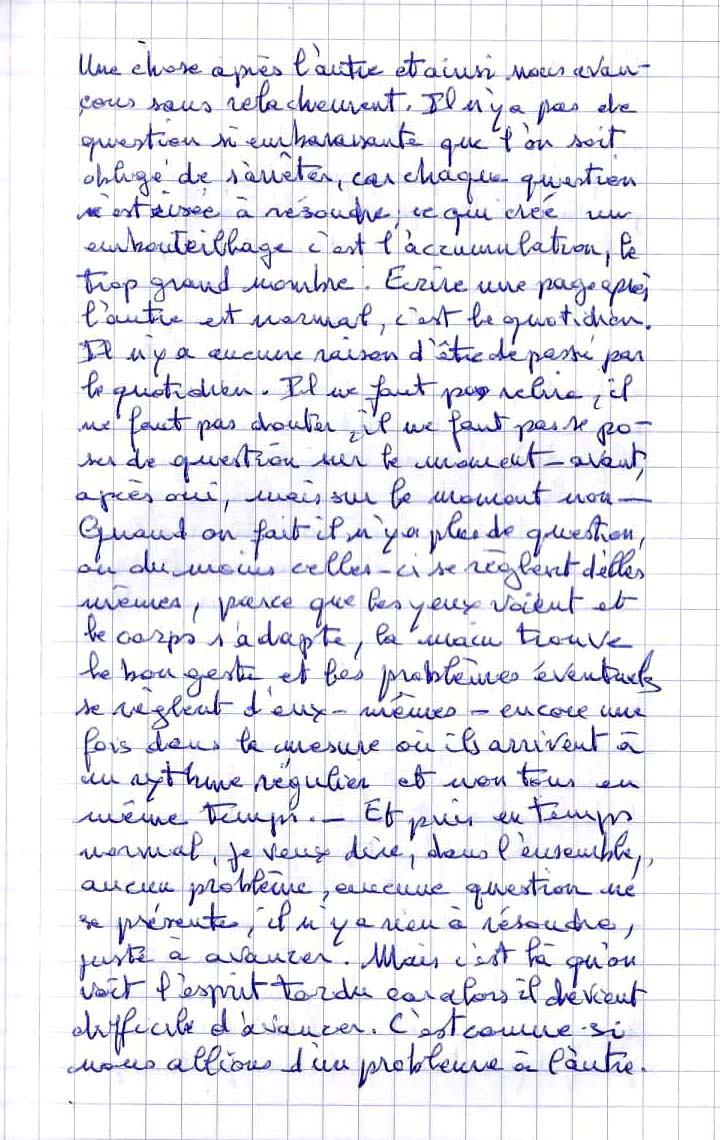 Une chose après l'autre et ainsi nous avan-
çons sans relachement. Il n'y a pas de
question si embarassante que l'on soit
obligé de s'arrêter, car chaque question
est aisée à résoudre, ce qui créé un
embouteillage c'est l'accumulation, le
trop grand nombre. Ecrire une page après
l'autre est normal, c'est le quotidien.
Il n'y a aucune raison d'être depassé par
le quotidien. Il ne faut pas relire, il
ne faut pas douter, il ne faut pas se po-
ser de question sur le moment – avant,
après oui, mais sur le moment non –
Quand on fait il n'y a plus de question,
ou du moins celles-ci se règlent d'elles
mêmes, parce que les yeux voient et
le corps s'adapte, la main trouve
le bon geste et les problèmes éventuels
se règlent d'eux-mêmes – encore une
fois dans la mesure où ils arrivent à
un rythme régulier et non tous en
même temps. – Et puis en temps
normal, je veux dire, dans l'ensemble,
aucun problème, aucune question ne
se présente, il n'y a rien à résoudre,
juste à avancer. Mais c'est là qu'on
voit l'esprit tordu car alors il devient
difficile d'avancer. C'est comme si
nous allions d'un problème à l'autre.